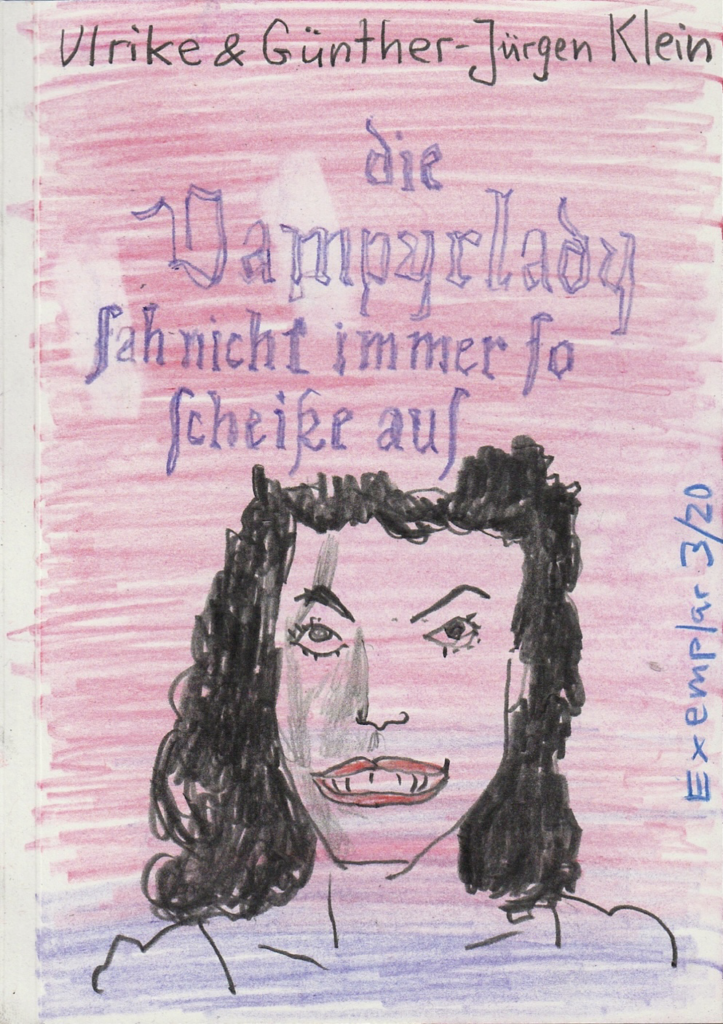 Ulrike & Günther-Jürgen Klein
die
Vampyrlady
ſah nicht immer ſo
ſcheiße auſ
Exemplar 3/20